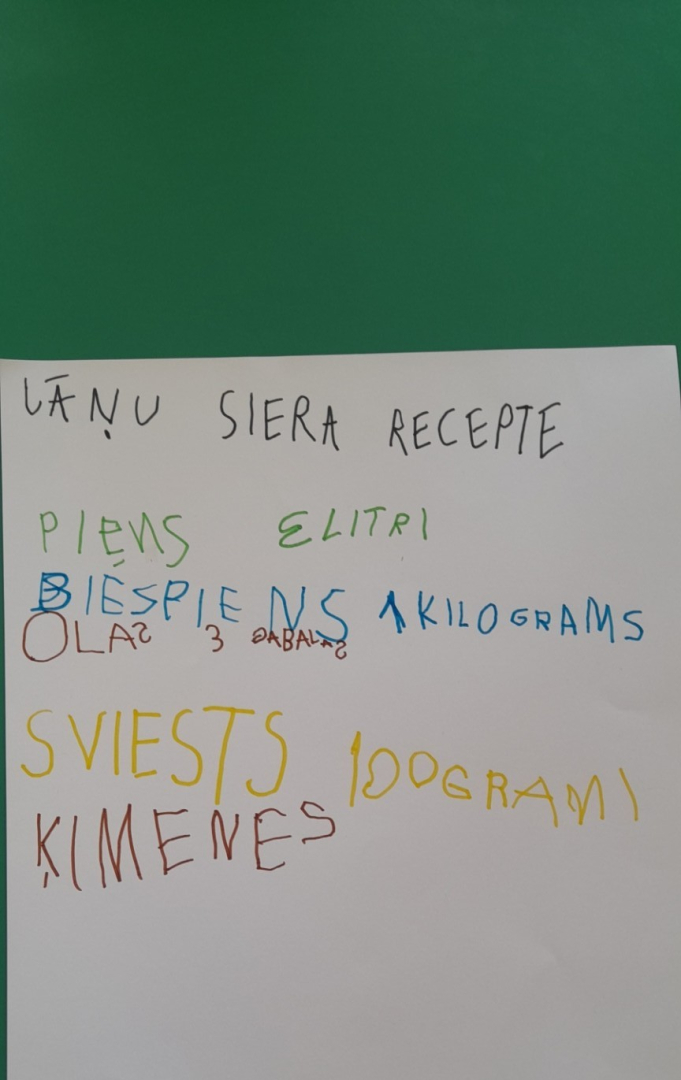 JĀŅU SIERA RECEPTE
PIEŅS 3LITRI
BIESPIENS 1KILOGRAMS
OLAS 3 GABALAS
SVIESTS 100GRAMI
ĶIMENES